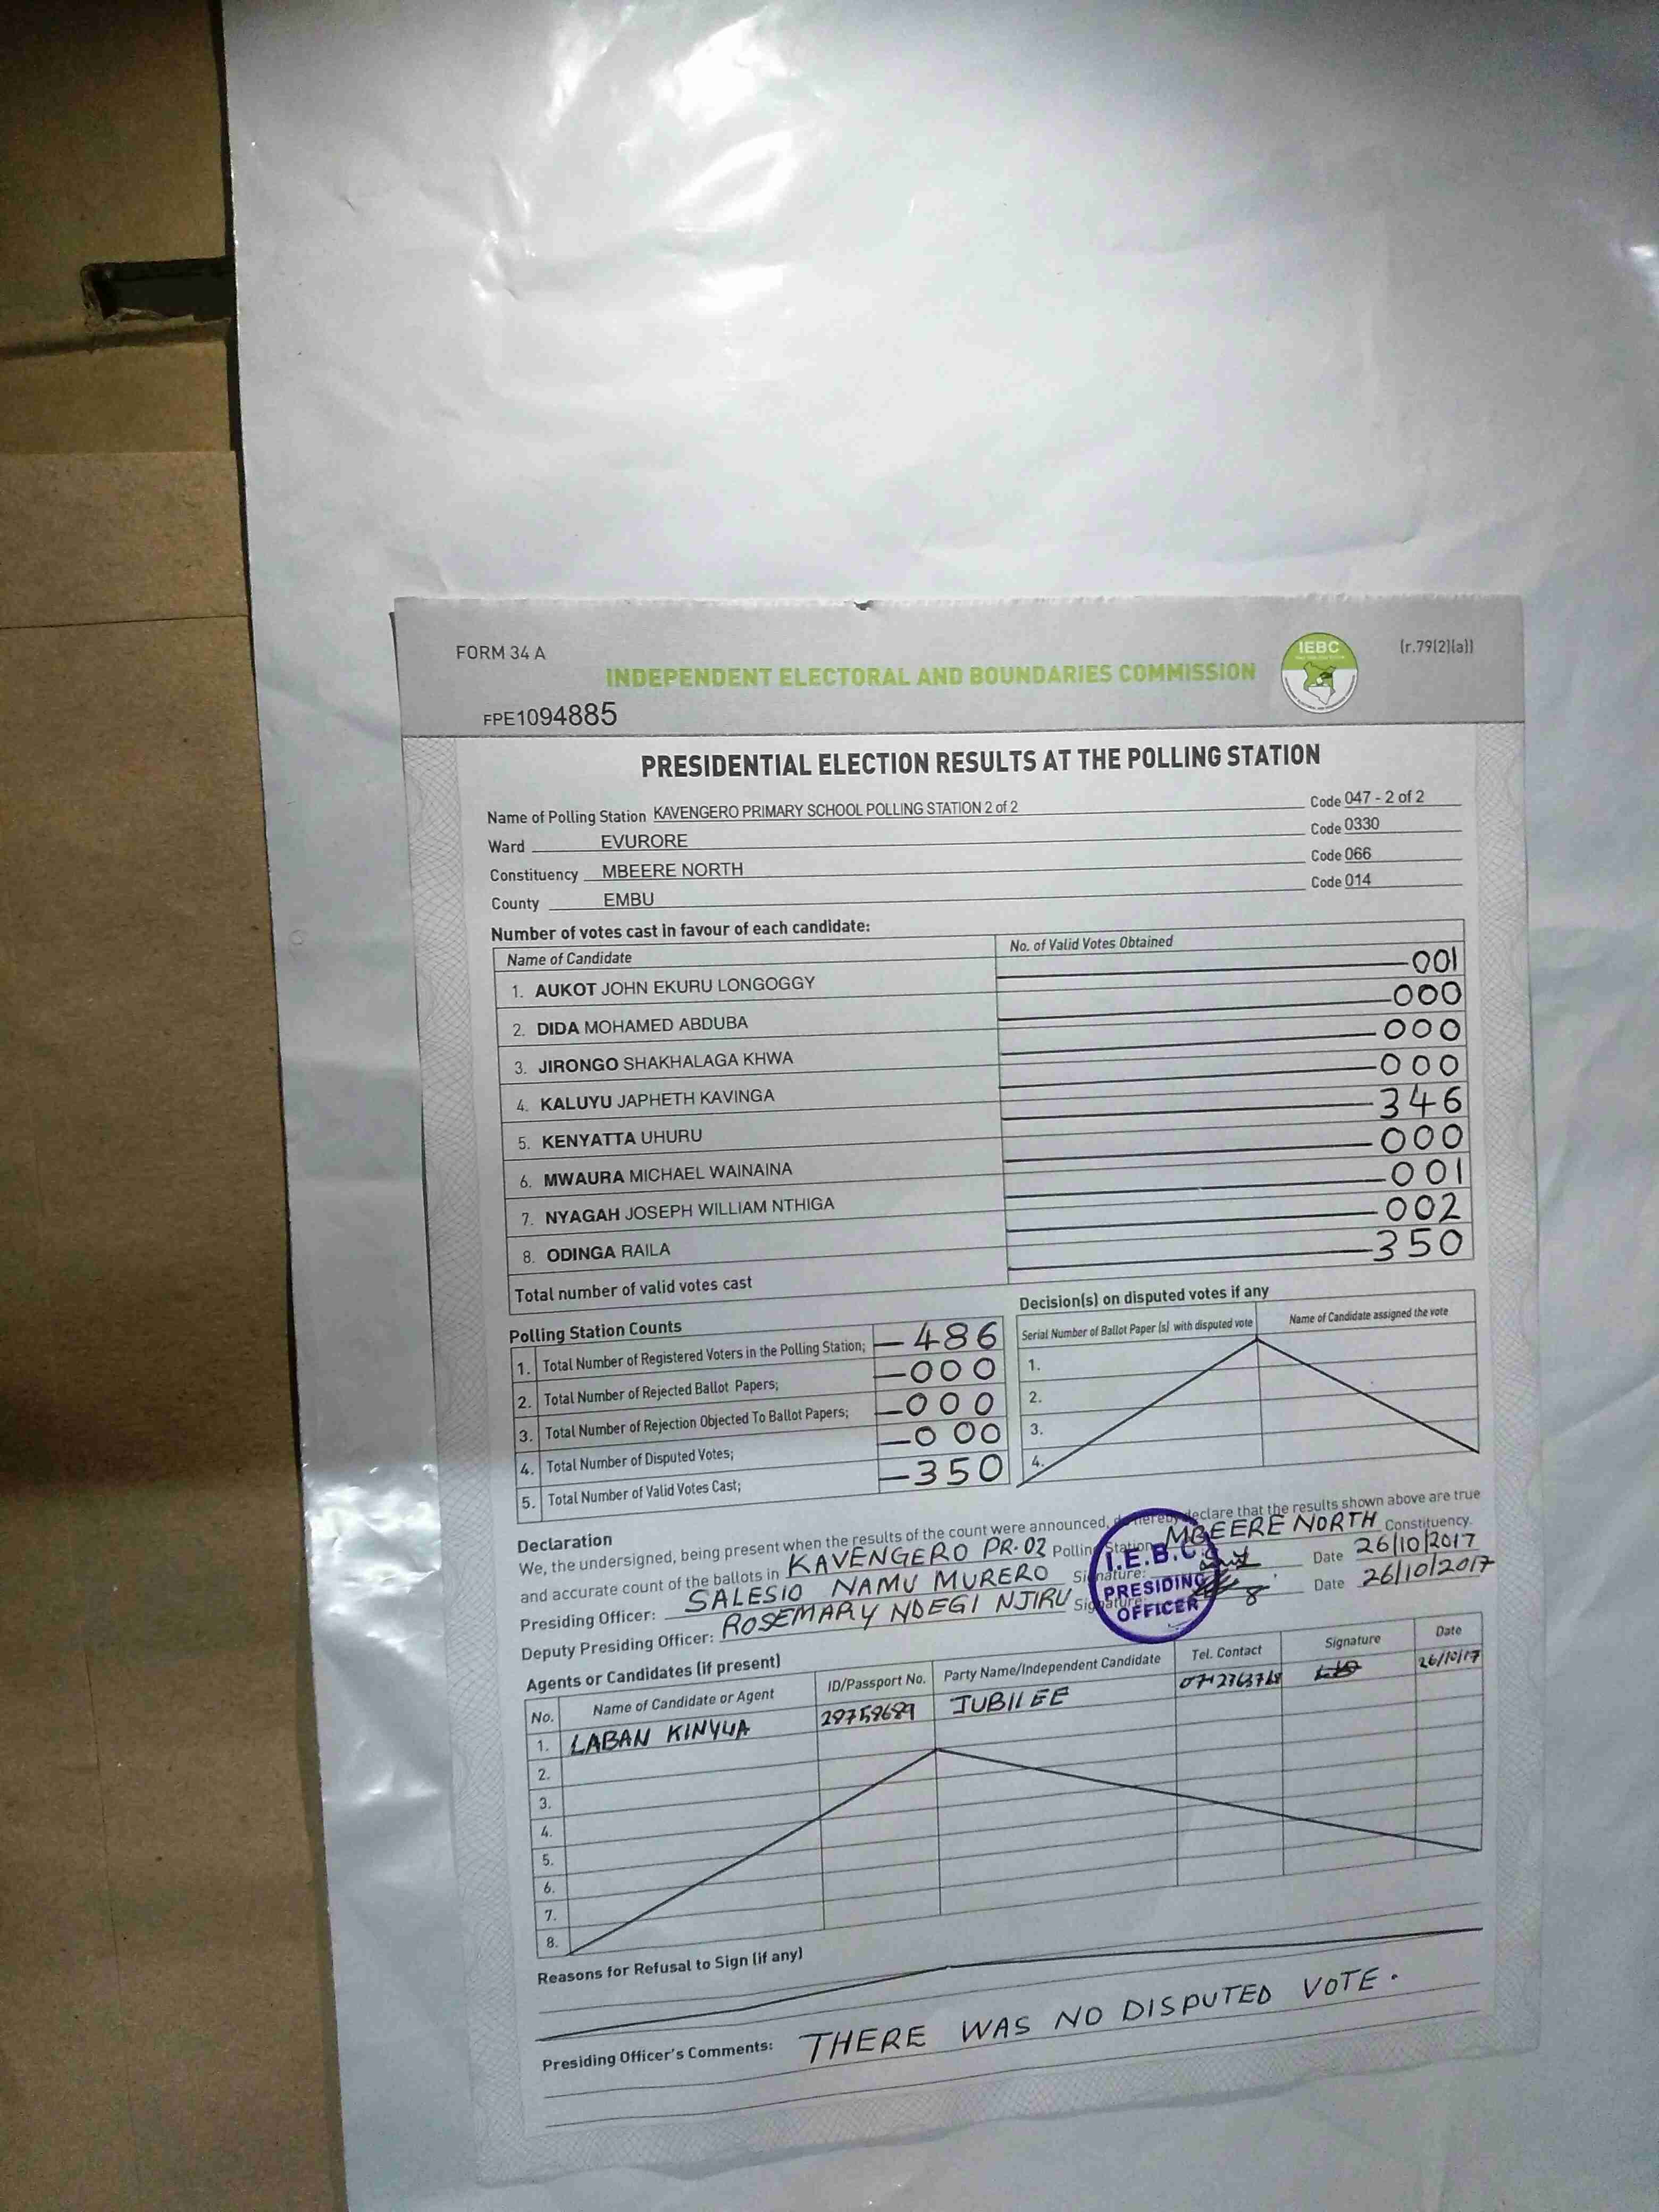 FORM 34 A
IEBC
(r.79(2)(a))
INDEPENDENT ELECTORAL AND BOUNDARIES COMMISSION
FPE1094885
PRESIDENTIAL ELECTION RESULTS AT THE POLLING STATION
Name of Polling Station KAVENGERO PRIMARY SCHOOL POLLING STATION 2 of 2 Code 047 - 2 of 2
Ward EVURORE Code 0330
Constituency MBEERE NORTH Code 066
County EMBU Code 014
Number of votes cast in favour of each candidate:
Name of Candidate No. of Valid Votes Obtained
1. AUKOT JOHN EKURU LONGOGGY 001
2. DIDA MOHAMED ABDUBA 000
3. JIRONGO SHAKHALAGA KHWA 000
4. KALUYU JAPHETH KAVINGA 000
5. KENYATTA UHURU 346
6. MWAURA MICHAEL WAINAINA 000
7. NYAGAH JOSEPH WILLIAM NTHIGA 001
8. ODINGA RAILA 002
Total number of valid votes cast 350
Polling Station Counts
1. Total Number of Registered Voters in the Polling Station; 486
2. Total Number of Rejected Ballot Papers; 000
3. Total Number of Rejection Objected To Ballot Papers; 000
4. Total Number of Disputed Votes; 000
5. Total Number of Valid Votes Cast; 350
Decision(s) on disputed votes if any
Serial Number of Ballot Paper (s) with disputed vote Name of Candidate assigned the vote
1.
2.
3.
4.
Declaration
We, the undersigned, being present when the results of the count were announced, do hereby declare that the results shown above are true
and accurate count of the ballots in KAVENGERO PR. 02 Polling Station MBEERE NORTH Constituency.
Presiding Officer: SALESIO NAMU MURERO Signature: Date 26/10/2017
Deputy Presiding Officer: ROSEMARY NDEGI NJIRU Signature: Date 26/10/2017
I.E.B.C.
PRESIDING
OFFICER
Agents or Candidates (if present)
No. Name of Candidate or Agent ID/Passport No. Party Name/Independent Candidate Tel. Contact Signature Date
1. LABAN KINYUA JUBILEE 26/10/17
2.
3.
4.
5.
6.
7.
8.
Reasons for Refusal to Sign (if any)
Presiding Officer's Comments: THERE WAS NO DISPUTED VOTE.